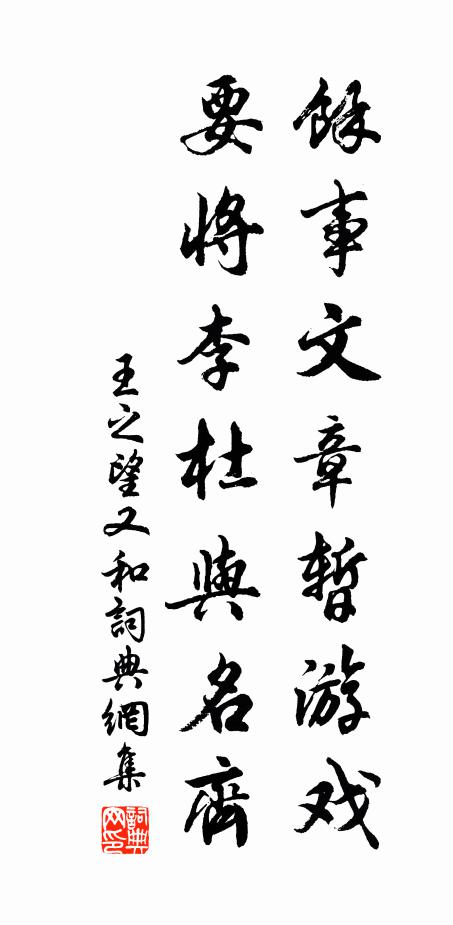 餘事文章暫游戏
要將李杜與名齊
王之望又和詞典網集
詞典
网印